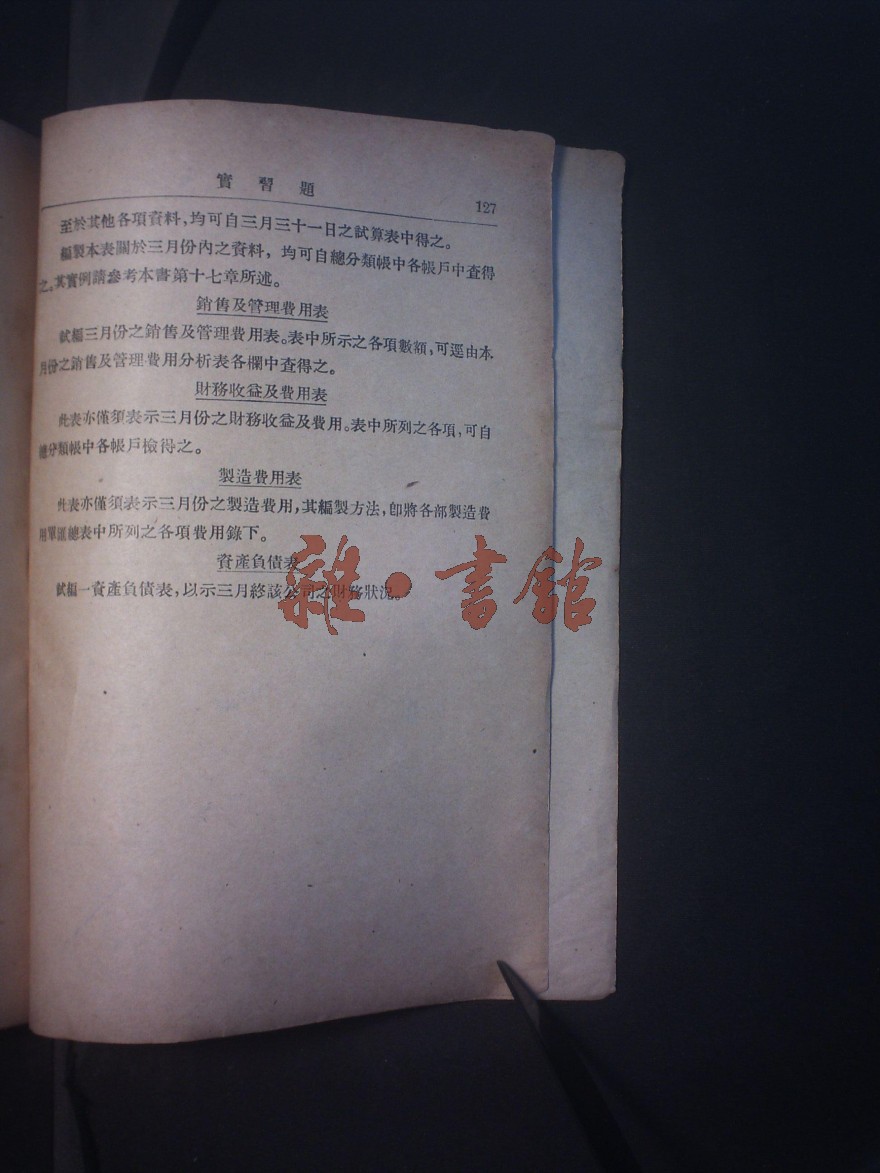 實習題
127
至於其他各項資料，均可自三月三十一日之試算表中得之。
編製本表關於三月份內之資料，均可自總分類帳中各帳戶中查得
之。其實例請參考本書第十七章所述。
銷售及管理費用表
試編三月份之銷售及管理費用表。表中所示之各項數額，可逕由本
月份之銷售及管理費用分析表各欄中查得之。
財務收益及費用表
此表亦僅須表示三月份之財務收益及費用。表中所列之各項，可自
總分類帳中各帳戶檢得之。
製造費用表
此表亦僅須表示三月份之製造費用，其編製方法，卽將各部製造費
用單匯總表中所列之各項費用錄下。
資產負債表
試編一資產負債表，以示三月終該公司之財務狀況。
雜·書館